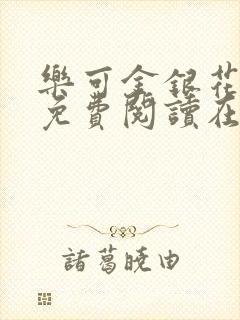 樂可金銀花
免費閱讀在
諸葛曉由